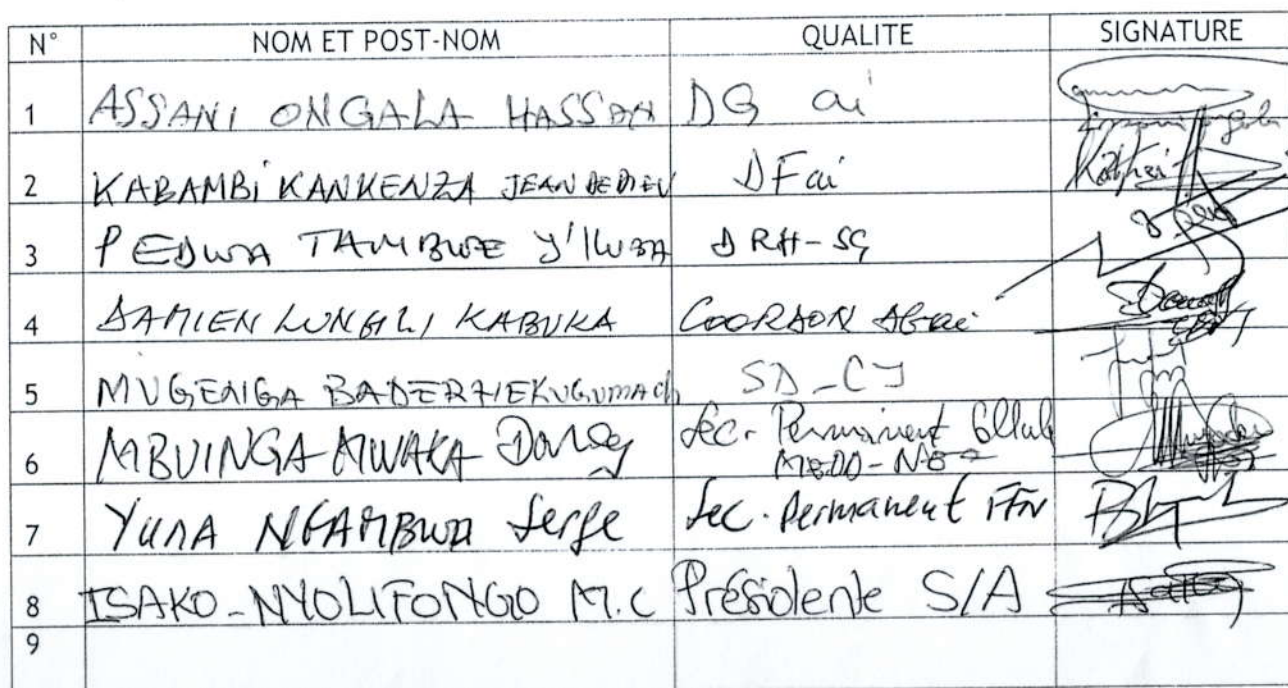 N° NOM ET POST-NOM QUALITE SIGNATURE
1 ASSANI ONGALA HASSAN DG ai
2 KABAMBI KANKENZA JEAN DEDIEU DFai
3 PEDWA TAMBWE Y'ILUBA DRH-SG
4 DAMIEN LUNGILI KABUKA
5 MUGENGA SD-CJ
6 MBUINGA MWAKA Sec. Permanent
7 YUMA NGAMBWA Serge Sec. Permanent FFN
8 ISAKO-NYOLIFONGO M.C Présidente S/A
9